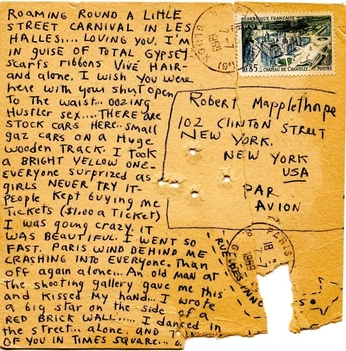 ROAMING ROUND A LITTLE
STREET CARNIVAL IN LES
HALLES.... LOVING YOU. I'M
IN GUISE OF TOTAL GYPSET
SCARFS RIBBONS VIVE HAIR-
and alone. I wish you were
here with your shirt open
To the waist... oozing
Hustler sex.... THERE are
STOCK CARS HERE.. small
gaz cars on a Huge
wooden Track. I Took
a BRIGHT YELLOW one-
everyone surprized as
girls never TRY iT-
People. Kept buying me
Tickets ($1.00 a Ticket)
I was going crazy iT
WAS BEAUTIFUL. I WENT SO
FAST. PARIS WIND BEHIND ME
CRASHING INTO EVERYONE. Than
off again alone... An old man at
The shooting gallery gave me this
and kissed My hand... I wrote
a big star on the side of a
RED BRICK WALL..... I danced in
the street.. alone. AND
OF YOU IN TIMES SQUARE...
REPUBLIQUE FRANÇAISE
0.85
CHATEAU DE CHANTILLY
POSTES
Robert Mapplethorpe
102 CLINTON STREET
NEW YORK.
NEW YORK
USA
PAR
AVION
PARIS
1969